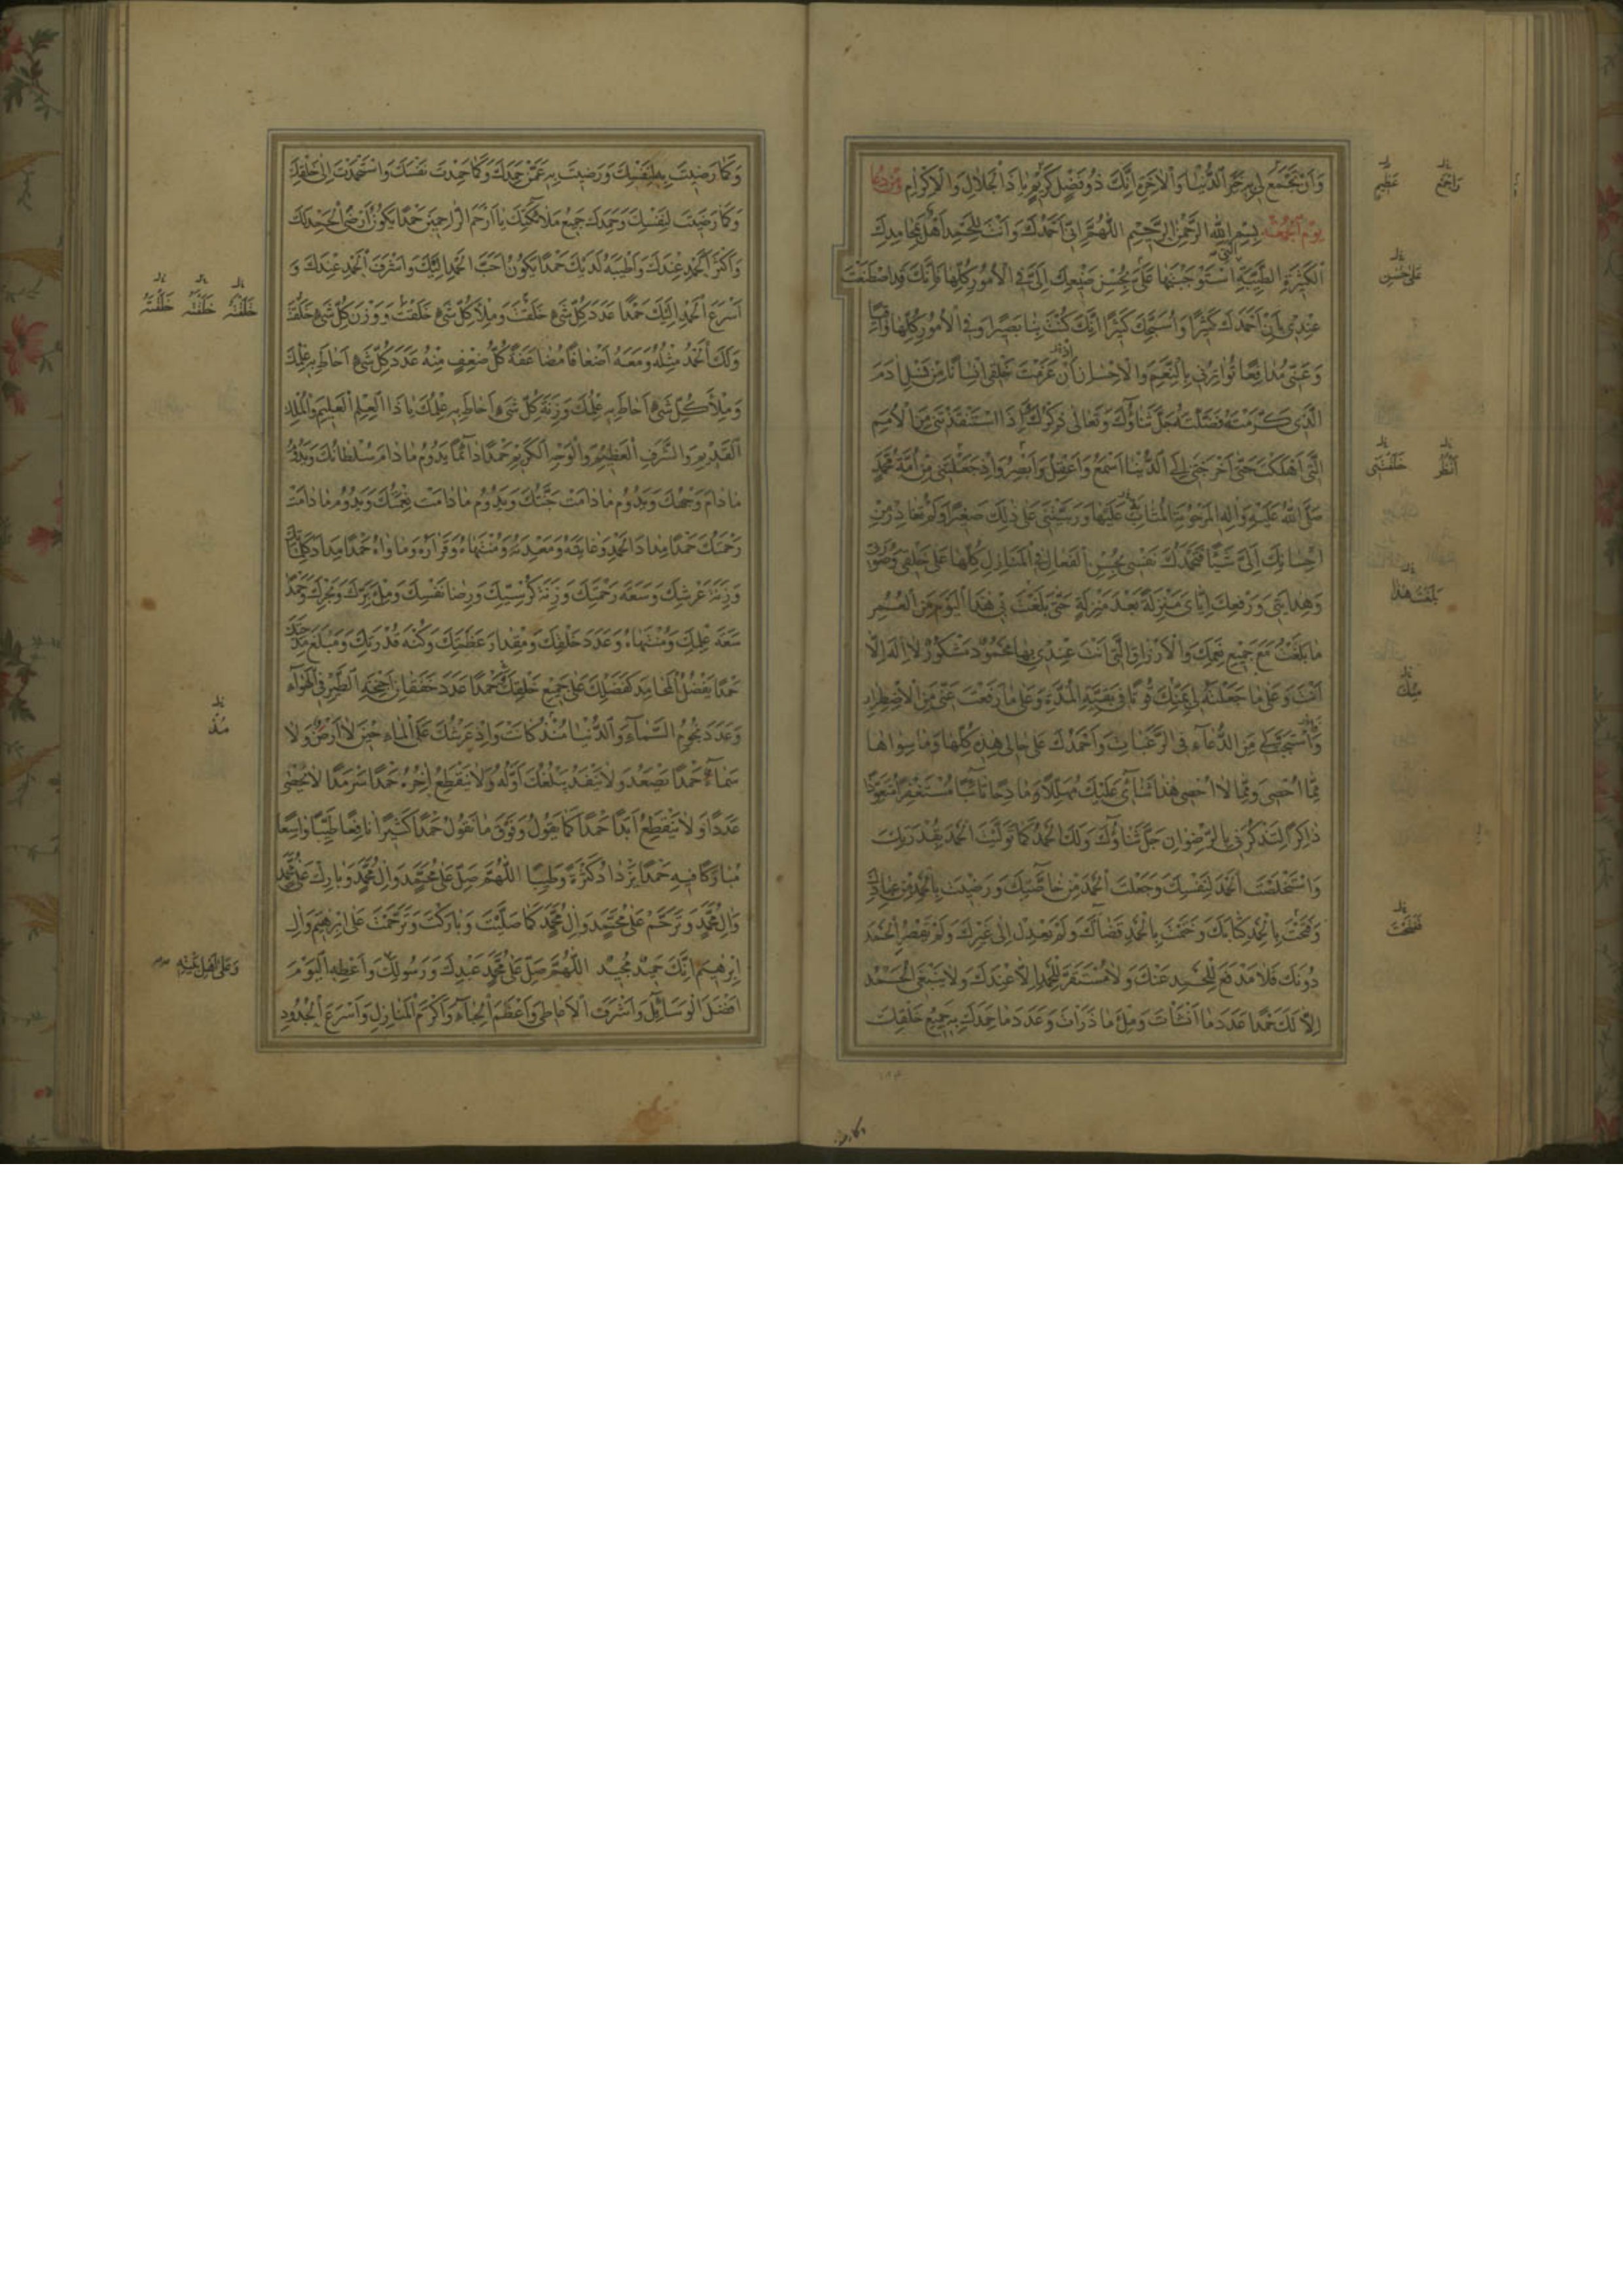 وَاَنْ تَجْمَعَ لِي خَيْرَ الدُّنْيَا وَالْاٰخِرَةِ اِنَّكَ ذُو فَضْلٍ كَرِيمٍ يَا ذَا الْجَلَالِ وَالْاِكْرَامِ
يَوْمَ الْجُمُعَةِ بِسْمِ اللهِ الرَّحْمٰنِ الرَّحِيمِ اللّٰهُمَّ اِنِّي اَحْمَدُكَ وَاَنْتَ لِلْحَمْدِ اَهْلٌ بِمَحَامِدِكَ
الْكَثِيرَةِ الطَّيِّبَةِ الَّتِي اسْتَوْجَبْتَهَا عَلَيَّ بِحُسْنِ صَنِيعِكَ اِلَيَّ فِي الْاُمُورِ كُلِّهَا فَاِنَّكَ قَدِ اصْطَنَعْتَ
عِنْدِي بِاَنْ اَحْمَدَكَ كَثِيرًا وَاُسَبِّحَكَ كَثِيرًا اِنَّكَ كُنْتَ بِنَا بَصِيرًا وَفِي الْاُمُورِ كُلِّهَا
وَعَنِّي مُدَافِعًا تُوَاتِرُنِي بِالنِّعَمِ وَالْاِحْسَانِ اِذْ عَزَمْتَ خَلْقِي اِنْسَانًا مِنْ نَسْلِ اٰدَمَ
الَّذِي كَرَّمْتَهُ وَفَضَّلْتَهُ جَلَّ ثَنَاؤُكَ وَتَعَالٰى ذِكْرُكَ اِذَا اسْتَنْقَذْتَنِي مِنَ الْاُمَمِ
الَّتِي اَهْلَكْتَ حَتّٰى اَخْرَجْتَنِي اِلَى الدُّنْيَا اَسْمَعُ وَاَعْقِلُ وَاُبْصِرُ وَاِذْ جَعَلْتَنِي مِنْ اُمَّةِ مُحَمَّدٍ
صَلَّى اللهُ عَلَيْهِ وَاٰلِهِ الْمَرْحُومَةِ الْمُثَابِ عَلَيْهَا وَرَبَّيْتَنِي عَلٰى ذٰلِكَ صَغِيرًا وَلَمْ تُغَادِرْ مِنْ
اِحْسَانِكَ اِلَيَّ شَيْئًا فَتَحْمَدُكَ نَفْسِي بِحُسْنِ الْفَعَالِ فِي الْمَنَازِلِ كُلِّهَا عَلٰى خَلْقِي وَصُورَتِي
وَهِدَايَتِي وَرَفْعِكَ اِيَّايَ مَنْزِلَةً بَعْدَ مَنْزِلَةٍ حَتّٰى بَلَغْتَ بِي هٰذَا الْيَوْمَ مِنَ الْعُمُرِ
مَا بَلَغْتُ مَعَ جَمِيعِ نِعَمِكَ وَالْاَرْزَاقِ الَّتِي اَنْتَ عِنْدِي بِهَا مَحْمُودٌ مَشْكُورٌ لَا اِلٰهَ اِلَّا
اَنْتَ وَعَلٰى مَا جَعَلْتَهُ لِي بِمَنِّكَ قُوتًا فِي بَقِيَّةِ الْمُدَّةِ وَعَلٰى مَا رَفَعْتَ عَنِّي مِنَ الْاِضْطِرَارِ
وَاسْتَجَبْتَ لِي مِنَ الدُّعَاءِ فِي الرَّغَبَاتِ وَاَحْمَدُكَ عَلٰى حَالِي هٰذِهِ كُلِّهَا وَمَا سِوَاهَا
مِمَّا اُحْصِي وَمِمَّا لَا اُحْصِي هٰذَا ثَنَائِي عَلَيْكَ مُهَلِّلًا وَمَادِحًا تَائِبًا مُسْتَغْفِرًا مُتَعَوِّذًا
ذَاكِرًا لِتَذْكُرَنِي بِالرِّضْوَانِ جَلَّ ثَنَاؤُكَ وَلَكَ الْحَمْدُ كَمَا تَوَلَّيْتَ الْحَمْدَ بِقُدْرَتِكَ
وَاسْتَخْلَصْتَ الْحَمْدَ لِنَفْسِكَ وَجَعَلْتَ الْحَمْدَ مِنْ خَاصَّتِكَ وَرَضِيتَ بِالْحَمْدِ مِنْ عِبَادِكَ
وَفَتَحْتَ بِالْحَمْدِ كِتَابَكَ وَخَتَمْتَ بِالْحَمْدِ قَضَاءَكَ وَلَمْ يَعْدِلْ اِلٰى غَيْرِكَ وَلَمْ يَقْصُرِ الْحَمْدُ
دُونَكَ فَلَا مَدْفَعَ لِلْحَمْدِ عَنْكَ وَلَا مُسْتَقَرَّ لِلْحَمْدِ اِلَّا عِنْدَكَ وَلَا يَنْبَغِي الْحَمْدُ
اِلَّا لَكَ حَمْدًا عَدَدَ مَا اَنْشَأْتَ وَمِلْءَ مَا ذَرَأْتَ وَعَدَدَ مَا حَمِدَكَ بِهِ جَمِيعُ خَلْقِكَ
وَاجْمَعْ
عَظِيمٍ
عَلٰى حُسْنِ
اَنْظُرُ
خَلَقْتَنِي
بَلَغْتُ هٰذَا
مِنْكَ
فَفَتَحْتَ
وَكَمَا رَضِيتَ بِهِ لِنَفْسِكَ وَرَضِيتَ بِهِ عَمَّنْ حَمِدَكَ وَكَمَا حَمِدْتَ نَفْسَكَ وَاسْتَحْمَدْتَ اِلٰى خَلْقِكَ
وَكَمَا رَضِيتَ لِنَفْسِكَ وَحَمِدَكَ جَمِيعُ مَلَائِكَتِكَ يَا اَرْحَمَ الرَّاحِمِينَ حَمْدًا يَكُونُ اَرْضَى الْحَمْدِ لَكَ
وَاَكْثَرَ الْحَمْدِ عِنْدَكَ وَاَطْيَبَهُ لَدَيْكَ حَمْدًا يَكُونُ اَحَبَّ الْحَمْدِ اِلَيْكَ وَاَشْرَفَ الْحَمْدِ عِنْدَكَ وَ
اَسْرَعَ الْحَمْدِ اِلَيْكَ حَمْدًا عَدَدَ كُلِّ شَيْءٍ خَلَقْتَ وَمِلْأَ كُلِّ شَيْءٍ خَلَقْتَ وَوَزْنَ كُلِّ شَيْءٍ خَلَقْتَ
وَلَكَ الْحَمْدُ مِثْلُهُ وَمَعَهُ اَضْعَافًا مُضَاعَفَةً كُلُّ ضِعْفٍ مِنْهُ عَدَدَ كُلِّ شَيْءٍ اَحَاطَ بِهِ عِلْمُكَ
وَمِلْأَ كُلِّ شَيْءٍ اَحَاطَ بِهِ عِلْمُكَ وَزِنَةَ كُلِّ شَيْءٍ اَحَاطَ بِهِ عِلْمُكَ يَا ذَا الْعِلْمِ الْعَلِيمِ وَالْمُلْكِ
الْقَدِيمِ وَالشَّرَفِ الْعَظِيمِ وَالْوَجْهِ الْكَرِيمِ حَمْدًا دَائِمًا يَدُومُ مَا دَامَ سُلْطَانُكَ وَيَدُومُ
مَا دَامَ وَجْهُكَ وَيَدُومُ مَا دَامَتْ جَنَّتُكَ وَيَدُومُ مَا دَامَتْ نِعْمَتُكَ وَيَدُومُ مَا دَامَتْ
رَحْمَتُكَ حَمْدًا مِدَادَ الْحَمْدِ وَغَايَتَهُ وَمَعْدِنَهُ وَمُنْتَهَاهُ وَقَرَارَهُ وَمَأْوَاهُ حَمْدًا مِدَادَ كَلِمَاتِكَ
وَزِنَةَ عَرْشِكَ وَسَعَةَ رَحْمَتِكَ وَزِنَةَ كُرْسِيِّكَ وَرِضَا نَفْسِكَ وَمِلْءَ بَرِّكَ وَبَحْرِكَ وَحَمْدًا
سَعَةَ عِلْمِكَ وَمُنْتَهَاهُ وَعَدَدَ خَلْقِكَ وَمِقْدَارَ عَظَمَتِكَ وَكُنْهَ قُدْرَتِكَ وَمَبْلَغَ مَدْحِكَ
حَمْدًا يَفْضُلُ الْمَحَامِدَ كَفَضْلِكَ عَلٰى جَمِيعِ خَلْقِكَ حَمْدًا عَدَدَ خَفَقَانِ اَجْنِحَةِ الطَّيْرِ فِي الْهَوَاءِ
وَعَدَدَ نُجُومِ السَّمَاءِ وَالدُّنْيَا مُنْذُ كَانَتْ وَاِذْ عَرْشُكَ عَلَى الْمَاءِ حِينَ لَا اَرْضٌ وَلَا
سَمَاءٌ حَمْدًا يَصْعَدُ وَلَا يَنْفَدُ يَبْلُغُكَ اَوَّلُهُ وَلَا يَنْقَطِعُ اٰخِرُهُ حَمْدًا سَرْمَدًا لَا يُحْصٰى
عَدَدًا وَلَا يَنْقَطِعُ اَبَدًا حَمْدًا كَمَا تَقُولُ وَفَوْقَ مَا نَقُولُ حَمْدًا كَثِيرًا نَافِعًا طَيِّبًا وَاسِعًا
مُبَارَكًا فِيهِ حَمْدًا يَزْدَادُ كَثْرَةً وَطِيبًا اللّٰهُمَّ صَلِّ عَلٰى مُحَمَّدٍ وَاٰلِ مُحَمَّدٍ وَبَارِكْ عَلٰى مُحَمَّدٍ
وَاٰلِ مُحَمَّدٍ وَتَرَحَّمْ عَلٰى مُحَمَّدٍ وَاٰلِ مُحَمَّدٍ كَمَا صَلَّيْتَ وَبَارَكْتَ وَتَرَحَّمْتَ عَلٰى اِبْرٰهِيمَ وَاٰلِ
اِبْرٰهِيمَ اِنَّكَ حَمِيدٌ مَجِيدٌ اللّٰهُمَّ صَلِّ عَلٰى مُحَمَّدٍ عَبْدِكَ وَرَسُولِكَ وَاَعْطِهِ الْيَوْمَ
اَفْضَلَ الْوَسَائِلِ وَاَشْرَفَ الْاَعَاطِي وَاَعْظَمَ الْحِبَاءِ وَاَكْرَمَ الْمَنَازِلِ وَاَسْرَعَ الْجُدُودِ
خَلَقْتَهُ خَلَقْتَهُ خَلَقْتَهُ
مُذْ
وَعَلٰى اَهْلِ بَيْتِهِ